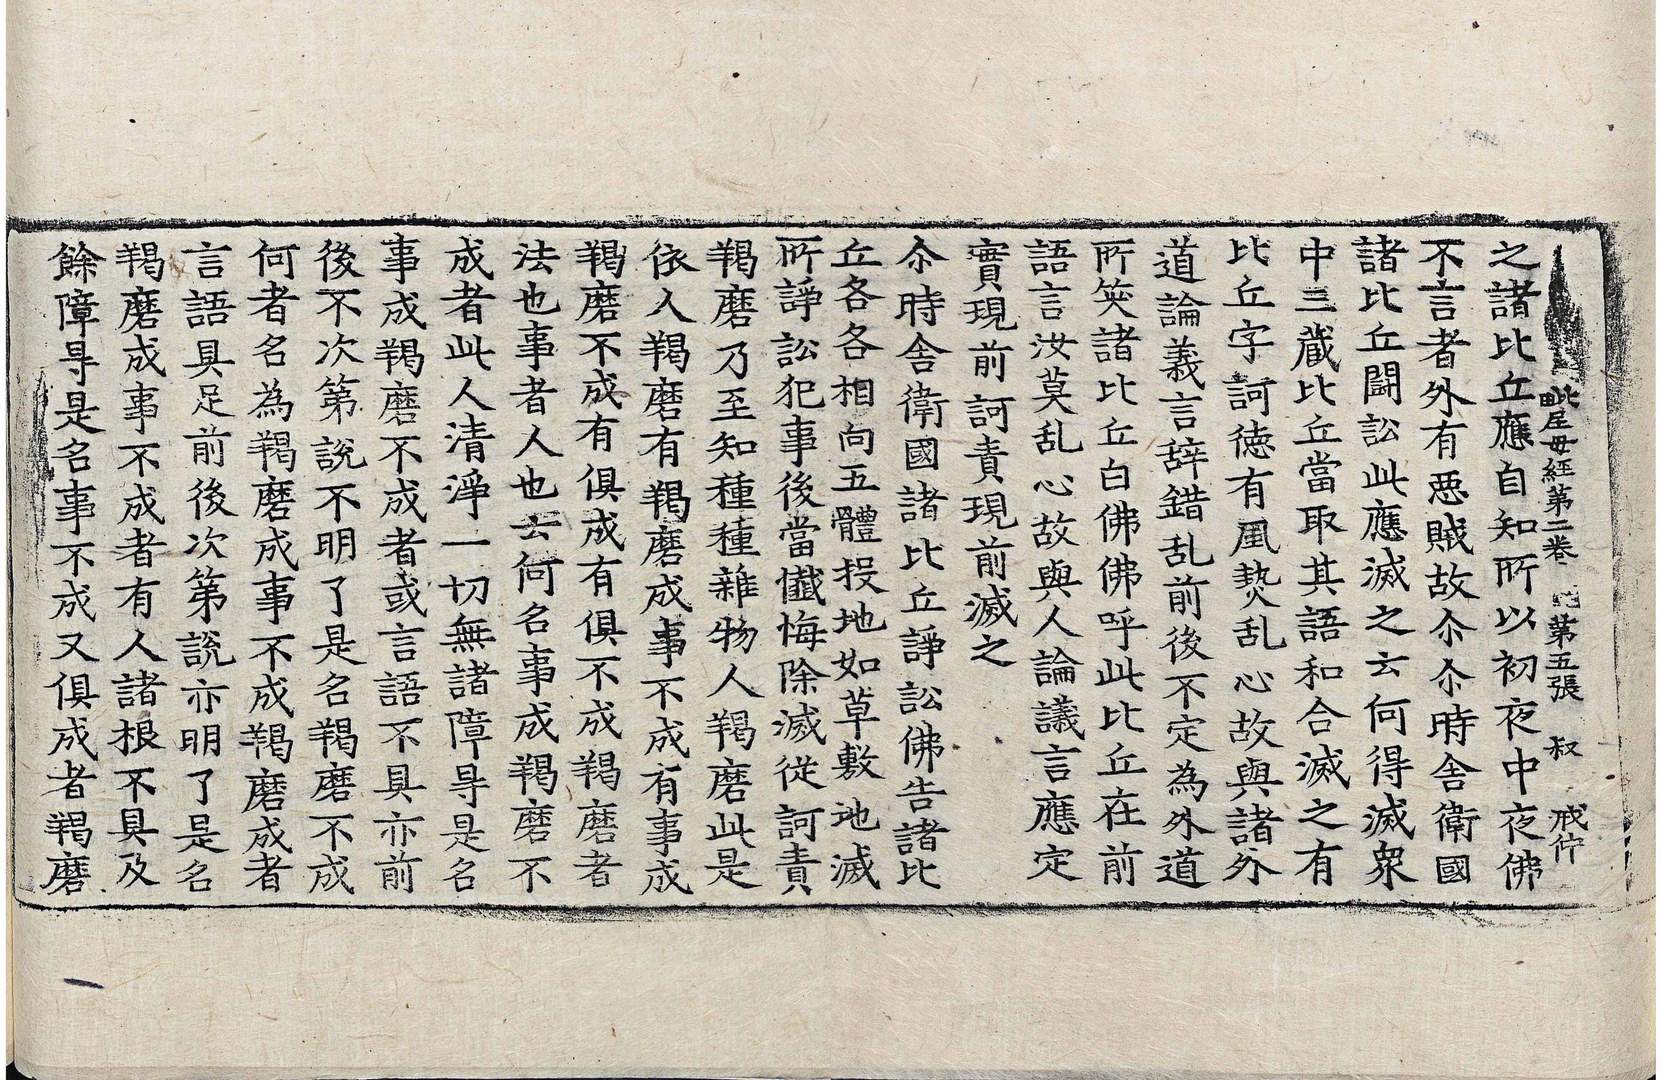 毗尼母經第二卷 第五張 叔 戒仲
之諸比丘應自知所以初夜中夜佛
不言者外有惡賊故尒尒時舍衛國
諸比丘鬪訟此應滅之云何得滅衆
中三藏比丘當取其語和合滅之有
比丘字訶德有風𤍠乱心故與諸外
道論義言辞錯乱前後不定為外道
所笑諸比丘白佛佛呼此比丘在前
語言汝莫乱心故與人論議言應定
實現前訶責現前滅之
尒時舍衛國諸比丘諍訟佛告諸比
丘各各相向五體投地如草敷地滅
所諍訟犯事後當懺悔除滅從訶責
羯磨乃至知種種雜物人羯磨此是
依人羯磨有羯磨成事不成有事成
羯磨不成有俱成有俱不成羯磨者
法也事者人也云何名事成羯磨不
成者此人清淨一切無諸障㝵是名
事成羯磨不成者或言語不具亦前
後不次第說不明了是名羯磨不成
何者名為羯磨成事不成羯磨成者
言語具足前後次第說亦明了是名
羯磨成事不成者有人諸根不具及
餘障㝵是名事不成又俱成者羯磨